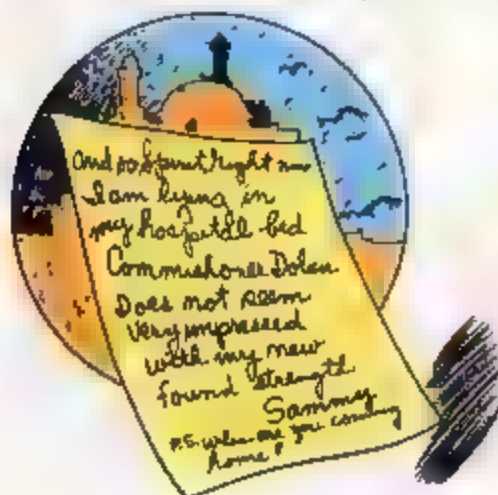 And so Spirit right now
I am lying in
my hospital bed
Commishoner Dolan
Does not seem
very impressed
with my new
found strength
Sammy
P.S. when are you coming
home?